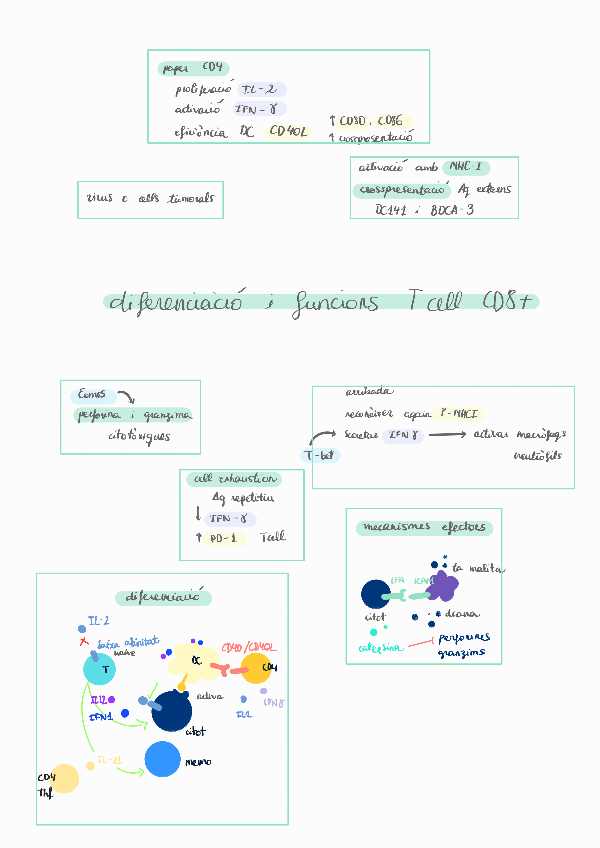 paper CD4
proliferació IL-2
activació IFN-γ
eficiència DC CD40L
↑ CD80, CD86
↑ crosspresentació
activació amb MHC-I
crosspresentació Ag externs
DC141 i BDCA-3
virus o cells tumorals
diferenciació i funcions T cell CD8+
Eomes
perforina i granzima
citotòxiques
arribada
reconèixer again P-MHCI
secretar IFNγ → activar macròfags
neutròfils
T-bet
cell exhaustion
Ag repetitiu
↓ IFN-γ
↑ PD-1 T cell
mecanismes efectors
LFA ICAM
la malita
citot
diana
catepsina
perforines
granzims
diferenciació
IL-2
baixa afinitat
naive
T
DC
CD40/CD40L
CD4
IL12
IFN1
activa
IFNγ
IL2
citot
IL-21
memo
CD4
Thf